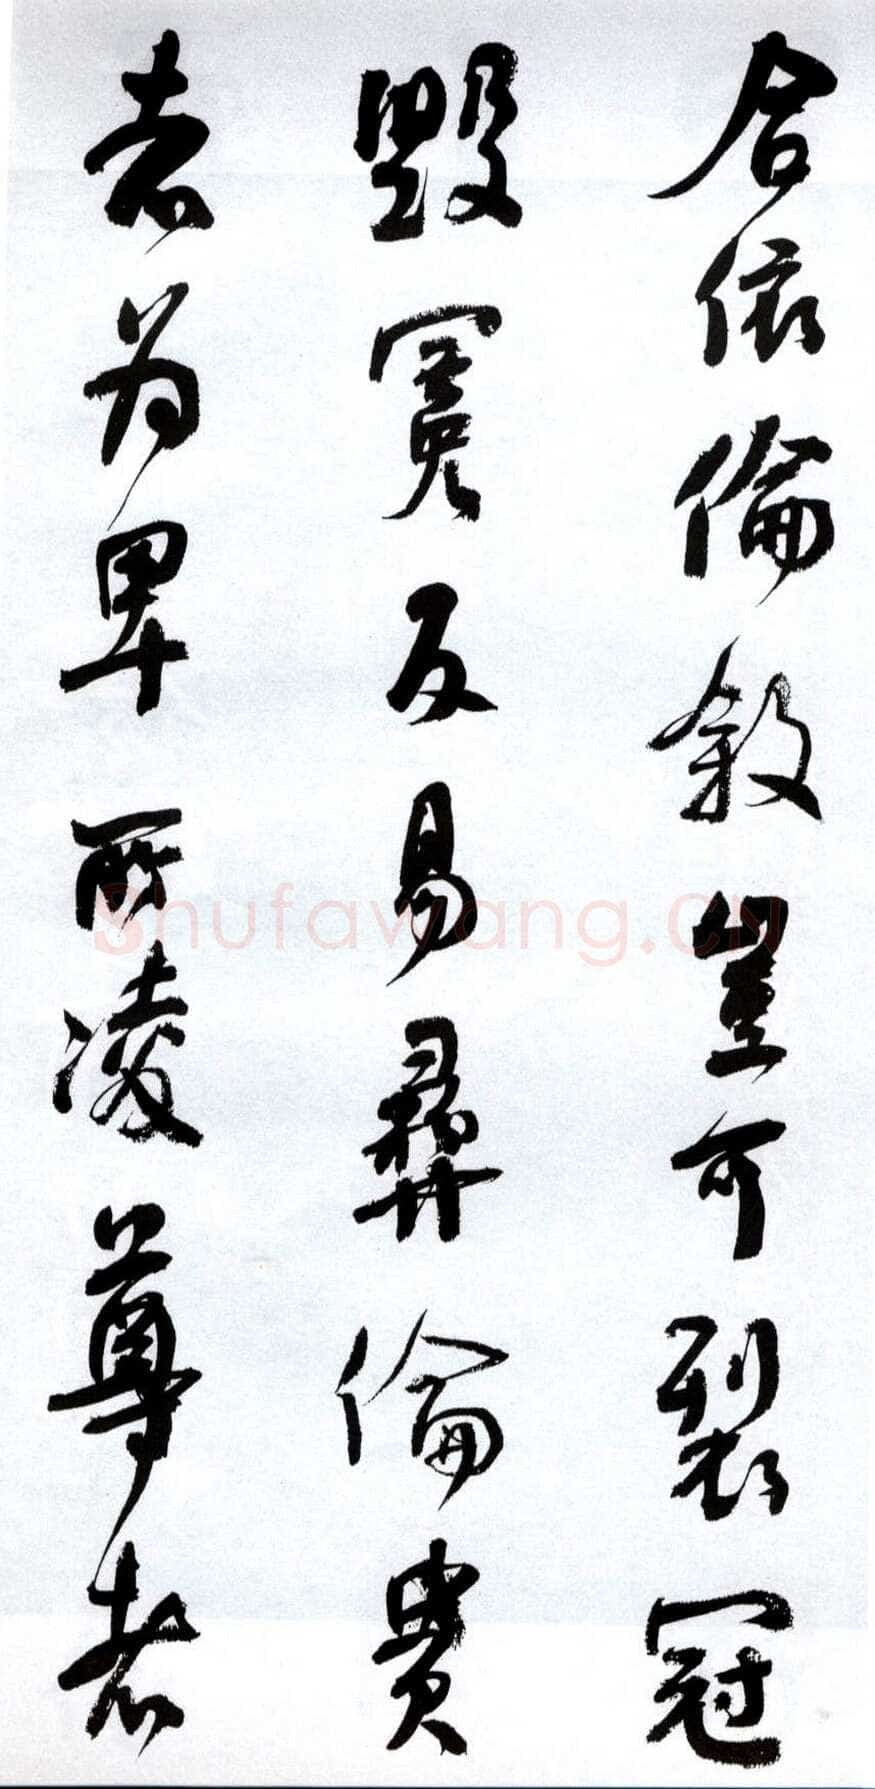 合依倫敘豈可裂冠
毀冕反易彝倫貴
者為卑所凌尊者
Shufawang.CN